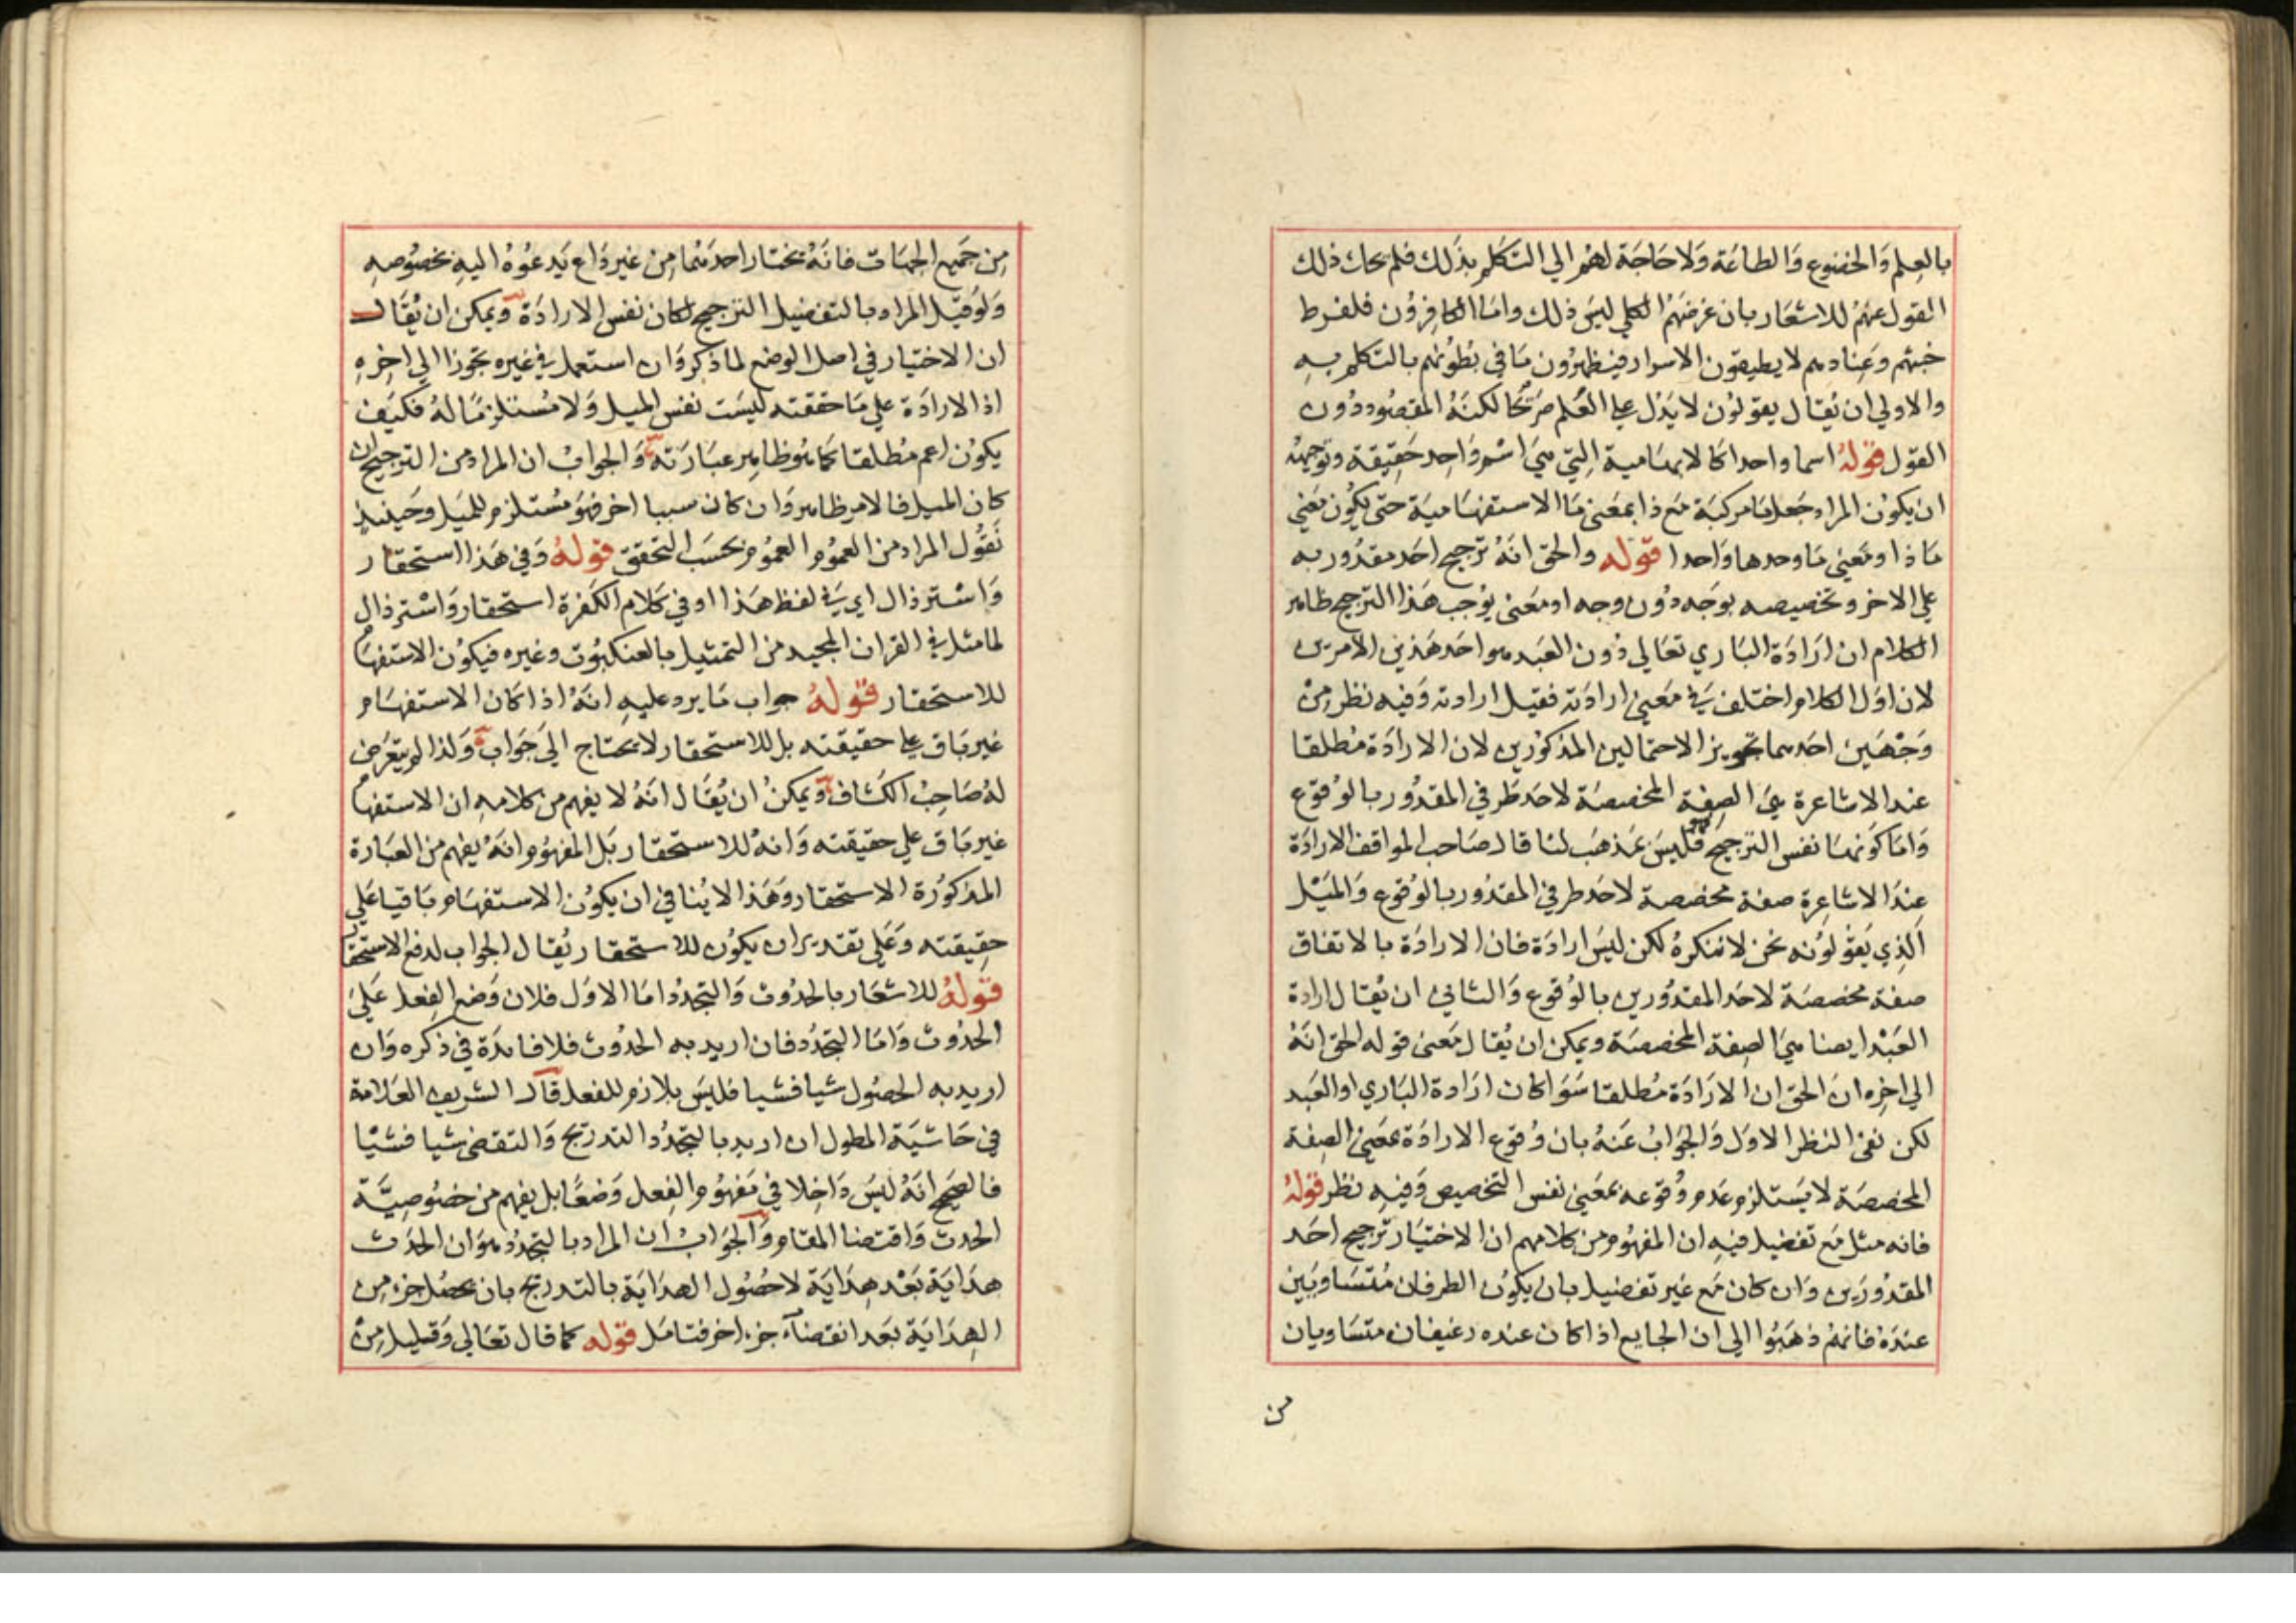 بالعِلم وَالخضوع وَالطاعَة وَلا حَاجَة لهُم الي التكَلم بذَلك فلم يحك ذلك
القول عنهُم للاشعَار بان غرضَهُم الكلي ليسَ ذلك وامَا الكافِرُون فلفرط
خبثهم وعِنادهم لا يطيقون الاسرار فيظهرُون مَا في بطُونهم بالتكلم بهِ
والاولي ان يُقال يقولوُن لا يَدُل علي العِلم صَريحًا لكنهُ المقصُود دُون
القول قولهُ اسما واحدا كالابهَامية التي هيَ اسْم وَاحِد حَقِيقة وتوجيهُه
ان يكوُن المراد جَعلهَا مركبَة مَع ذا بمعَني مَا الاستفهَاميَة حَتي يكُون مَعَني
مَا ذا ومَعَني مَا وحدها وَاحدا قوله والحَق انهُ ترجيح احَد مقدُوريه
علي الاخر وتخصيصه بوَجه دُون وجه اومَعَني يوُجب هَذا الترجيح ظاهر
الكلام ان ارَادَة البَاري تعَالي دُون العَبد هو احَد هَذين الامرين
لان اوَل الكلام واختلف في مَعَني ارادَته فقيل ارادته وَفيه نظر مِنْ
وَجْهَين احَدهما تجويز الاحتمالين المذكوُرين لان الارادَة مُطلقا
عند الاشاعرة هيَ الصِفة المخصصَة لاحَد طَرفي المقدُور بالوُقوُع
وَامَا كوَنهَا نفس الترجيح فليسَ مَذهَب لنا قال صَاحب المواقف الارادَة
عِندَ الاشاعِرة صفة مخصصة لاحَد طرفي المقدُور بالوُقوُع وَالميَل
اَلذِي يَقوُلوُنه نحن لا ننكرهُ لكن ليسَ ارادَة فان الارادَة بالاتفاق
صفة مخصصَة لاحَد المقدُورين بالوُقوُع وَالثاني ان يُقال ارادة
العَبْد ايضا هيَ الصِفة المخصصَة ويمكن ان يُقال مَعَني قوله الحَق انهُ
الي اخِره ان الحَق ان الارَادَة مُطلقا سَوَا كان ارَادة البَاري او العَبد
لكن نفي النظر الاوَل وَالجوَابُ عَنهُ بان وُقوُع الارادَة بمعَني الصِفة
المخصصَة لا يسَتلزم عَدم وُقوُعه بمعَني نفس التخصيص وَفيهِ نظر قولهُ
فانه مثل مَع تفضيل فيهِ ان المفهُوم من كلامهم ان الاختيَار ترجيح احَد
المقدُورَين وَان كان مَع غَير تفضيل بان يكوُن الطرفان مُتسَاويَين
عندَهُ فانهُم ذهَبُوا الي ان الجايع اذا كان عنده رغيفان متسَاويان
من
مِن جَميع الجهَات فانهُ يختار احدهُما مِن غير دَاع يَدعُوهُ اليهِ بخصُوصهِ
وَلوُ قيل المراد بالتفضيل الترجيح لكان نفس الارادَة ويمكن ان يُقَال
ان الاختيار في اصل الوضع لما ذكر وَان استعمل في غيره تجوزا الي اخِرهِ
اذ الارادَة علي مَا حققته ليسَت نفس الميل وَلا مُستلزمًا لهُ فكيَف
يكوُن اعم مُطلقا كما هُو ظاهِر عبَارَته وَالجوابُ ان المراد من الترجيح ان
كان الميل فالامر ظاهر وَان كان سببا اخر فهَو مُستلزم للميَل وحَينيذٍ
نَقوُل المراد من العمُوم العمُوم بحسَب التحقق قولهُ وَفي هَذا استحقار
وَاسْترذال اي في لفظ هَذا او في كلام الكَفرة استحقار وَاسْترذال
لما مثل في القران المجيد من التمثيل بالعنكبوُت وغيره فيكوُن الاستفهَام
للاستحقار قولهُ جواب مَا يرد عليهِ انهُ اذا كان الاستفهَام
غير بَاق علي حقيقته بل للاستحقار لا يحَتاج الي جَوَاب وَلذا لم يتعَرض
لهُ صَاحِبُ الكشاف ويمكنُ ان يُقَال انهُ لا يفهم من كلامهِ ان الاستفهام
غير بَاق علي حقيقته وَانهُ للاستحقار بَل المفهُوم انهُ يفهم من العبَارة
المذكوُرة الاستحقار وَهَذا لا يُنافي ان يكوُن الاستفهَام بَاقيا عَلي
حقِيقته وَعَلي تقدير ان يكوُن للاستحقار يُقال الجواب لدفع الاستحقار
قولهُ للاشعَار بالحدُوث وَالتجدُد امَا الاوَل فلان وَضع الفِعل عَليَ
الحدُوث وَامَا التجدُد فان اريد به الحدُوث فلا فايدَة في ذكره وَان
اريد به الحصُول شيا فشيا فليسَ بلازم للفعل قال الشريف العَلامة
في حَاشيَة المطول ان اريد بالتجدُد التدريج وَالتقضي شيا فشيًا
فالصحيح انهُ ليَس دَاخِلا في مَفهُوم الفِعل وَضعًا بل يفهم من خصُوصِيَّة
الحدث وَاقتضا المقام وَالجوَابُ ان المراد بالتجدُد هوَ ان الحدَث
هدَايَة بَعْد هِدَايَة لا حُصُول الهدَايَة بالتدريج بان يحصُل جزء مِن
الهِدَايَة بعَد انقضآء جزء اخر فتامَل قوله كما قال تعَالي وَقليل مِنْ